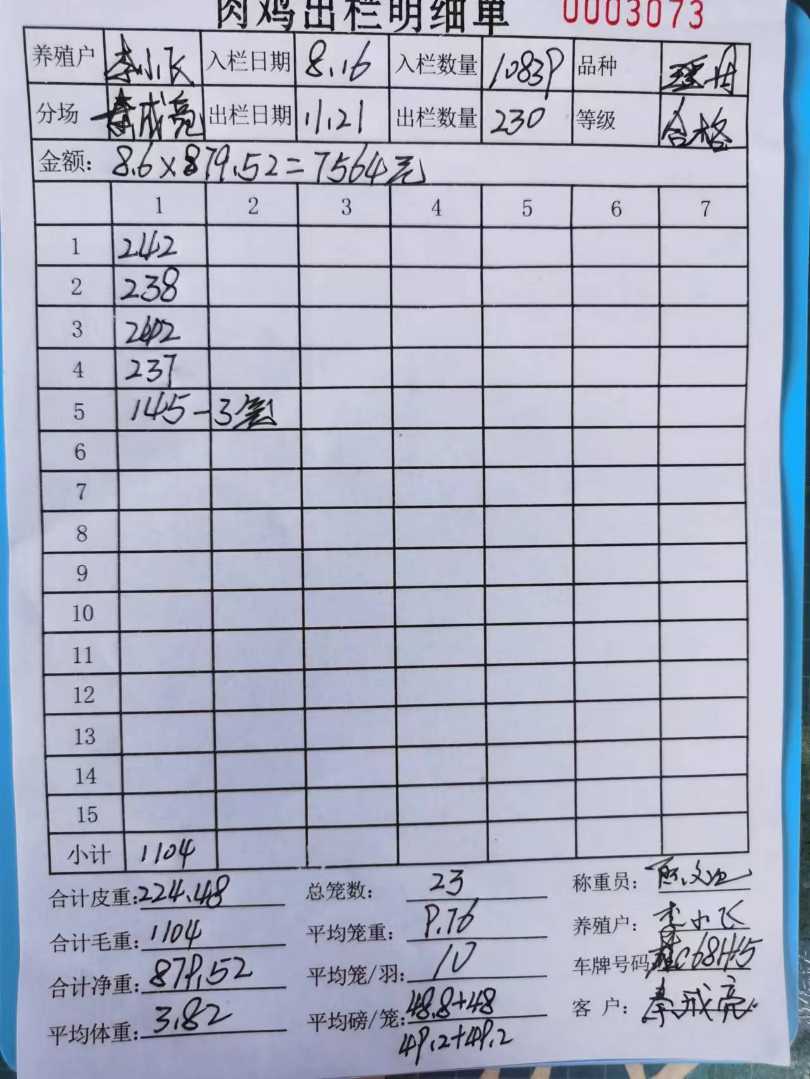 肉鸡出栏明细单 0003073
养殖户 李小飞 入栏日期 8.16 入栏数量 10839 品种
分场 秦成亮 出栏日期 11.21 出栏数量 230 等级 合格
金额: 8.6×879.52=7564元
1 2 3 4 5 6 7
1 242
2 238
3 242
4 237
5 145-3笼
6
7
8
9
10
11
12
13
14
15
小计 1104
合计皮重: 224.48 总笼数: 23 称重员:
合计毛重: 1104 平均笼重: 9.76 养殖户: 李小飞
合计净重: 879.52 平均笼/羽: 10 车牌号码 C68H45
平均体重: 3.82 平均磅/笼: 48.8+48 客户: 秦成亮
49.2+49.2